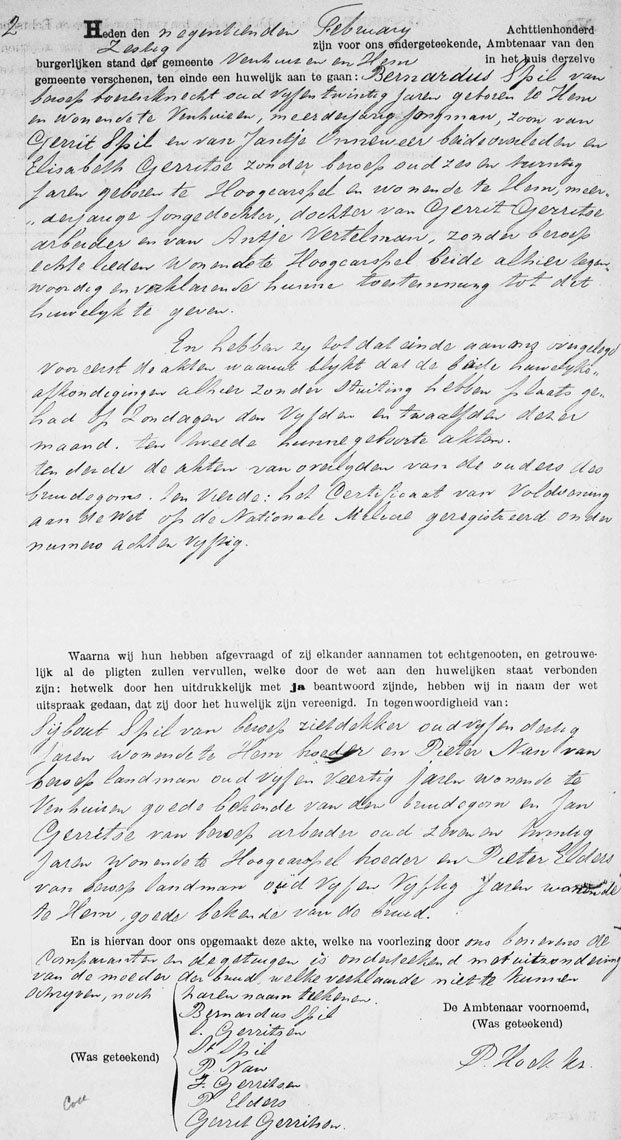 2
Heden den negentienden February Achttienhonderd
Zestig zijn voor ons ondergeteekende, Ambtenaar van den
burgerlijken stand der gemeente Venhuizen en Hem in het huis derzelve
gemeente verschenen, ten einde een huwelijk aan te gaan: Bernardus Spil van
beroep boerenknecht oud vyfentwintig jaren geboren te Hem
en wonende te Venhuizen, meerderjarig jongman, zoon van
Gerrit Spil en van Jantje Onneweer beide overleden en
Elisabeth Gerritse zonder beroep oud zes en twintig
jaren geboren te Hoogcarspel en wonende te Hem, meer-
„derjarige jongedochter, dochter van Gerrit Gerritse
arbeider en van Antje Vertelman, zonder beroep
echtelieden wonende te Hoogcarspel beide alhier tegen-
woordig en verklarende hunne toestemming tot dit
huwelyk te geven.
En hebben zy tot dat einde aan ons overgelegd
voor eerst de akten waaruit blykt dat de beide huwelyks-
afkondigingen alhier zonder stuiting hebben plaats ge-
had op Zondagen den vyfden en twaalfden dezer
maand. ten tweede hunne geboorte akten.
ten derde de akten van overlyden van de ouders des
bruidegoms. ten vierde: het Certificaat van Voldoening
aan de wet op de Nationale Militie geregistreerd onder
numero acht en vyftig.
Waarna wij hun hebben afgevraagd of zij elkander aannamen tot echtgenooten, en getrouwe-
lijk al de pligten zullen vervullen, welke door de wet aan den huwelijken staat verbonden
zijn: hetwelk door hen uitdrukkelijk met ja beantwoord zijnde, hebben wij in naam der wet
uitspraak gedaan, dat zij door het huwelijk zijn vereenigd. In tegenwoordigheid van:
Sijbout Spil van beroep rietdekker oud vyfendertig
jaren wonende te Hem broeder en Pieter Nan van
beroep landman oud vyf en veertig jaren wonende te
Venhuizen goede bekende van den bruidegom en Jan
Gerritse van beroep arbeider oud zeven en twintig
jaren wonende te Hoogcarspel broeder en Pieter Elders
van beroep landman oud vyf en vyftig jaren wonende
te Hem, goede bekende van de bruid.
En is hiervan door ons opgemaakt deze akte, welke na voorlezing door ons benevens de
Comparanten en de getuigen is onderteekend met uitzondering
van de moeder der bruid, welke verklaarde niet te kunnen
schryven, noch haren naam teekenen.
(Was geteekend)
Bernardus Spil
E. Gerritsen
St Spil
P. Nan
J. Gerritsen
P. Elders
Gerrit Gerritsen.
De Ambtenaar voornoemd,
(Was geteekend)
P. Hoek
Coll